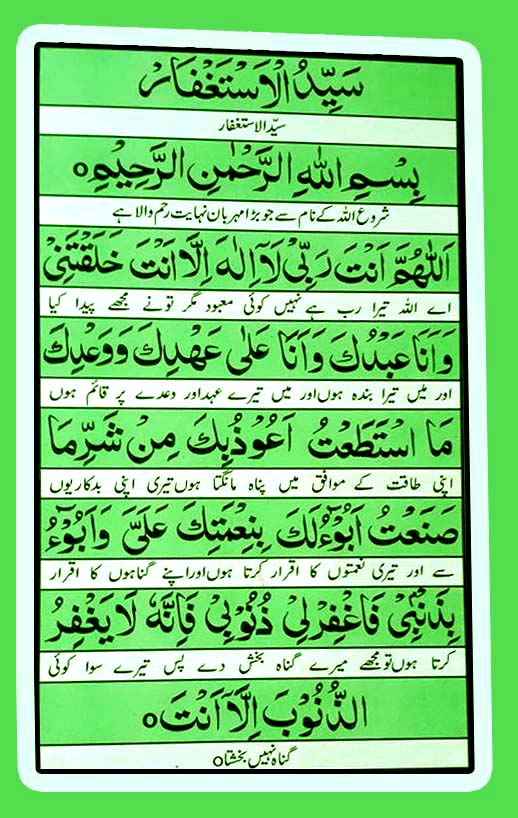 سَيِّدُ الْاِسْتَغْفَار
سیّد الاستغفار
بِسْمِ اللهِ الرَّحْمٰنِ الرَّحِيْمِ○
شروع اللہ کے نام سے جو بڑا مہربان نہایت رحم والا ہے
اَللّٰهُمَّ اَنْتَ رَبِّيْ لَآ اِلٰهَ اِلَّا اَنْتَ خَلَقْتَنِيْ
اے اللہ تیرا رب ہے نہیں کوئی معبود مگر تو نے مجھے پیدا کیا
وَاَنَا عَبْدُكَ وَاَنَا عَلٰى عَهْدِكَ وَوَعْدِكَ
اور میں تیرا بندہ ہوں اور میں تیرے عہد اور وعدے پر قائم ہوں
مَا اسْتَطَعْتُ اَعُوْذُبِكَ مِنْ شَرِّمَا
اپنی طاقت کے موافق میں پناہ مانگتا ہوں تیری اپنی بدکاریوں
صَنَعْتُ اَبُوْٓءُلَكَ بِنِعْمَتِكَ عَلَيَّ وَاَبُوْٓءُ
سے اور تیری نعمتوں کا اقرار کرتا ہوں اور اپنے گناہوں کا اقرار
بِذَنْبِيْ فَاغْفِرْلِيْ ذُنُوْبِيْ فَاِنَّهٗ لَا يَغْفِرُ
کرتا ہوں تو مجھے میرے گناہ بخش دے پس تیرے سوا کوئی
الذُّنُوْبَ اِلَّآ اَنْتَ○
گناہ نہیں بخشتا○